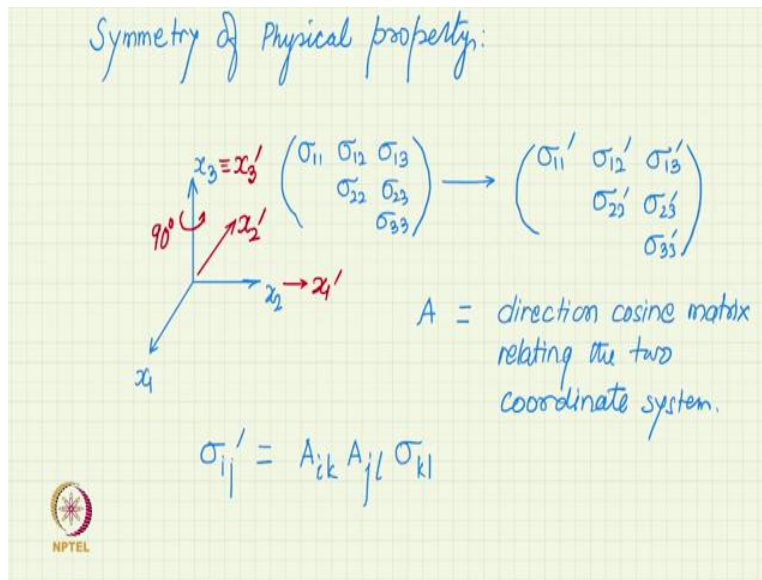 Symmetry of Physical property:
x₃≡x₃′
90°
x₂′
x₂→x₁′
x₁
(σ₁₁ σ₁₂ σ₁₃
σ₂₂ σ₂₃
σ₃₃) → (σ₁₁′ σ₁₂′ σ₁₃′
σ₂₂′ σ₂₃′
σ₃₃′)
A = direction cosine matrix
relating the two
coordinate system.
σᵢⱼ′ = Aᵢₖ Aⱼₗ σₖₗ
NPTEL